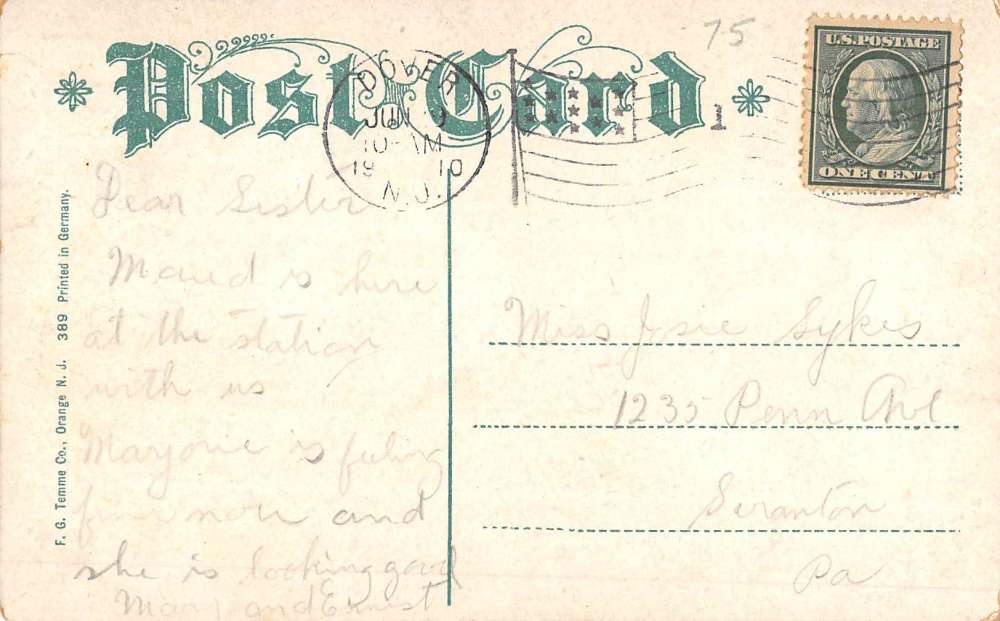 Post Card
75
U.S. POSTAGE
ONE CENT
DOVER
JUN 9
10 AM
1910
N.J.
F. G. Temme Co., Orange N. J. 389 Printed in Germany.
Dear Sister
Maud is here
at the station
with us
Marjorie is feeling
fine now and
she is looking good
Mary and Ernest
Miss Sykes
1235 Penn Ave
Scranton
Pa